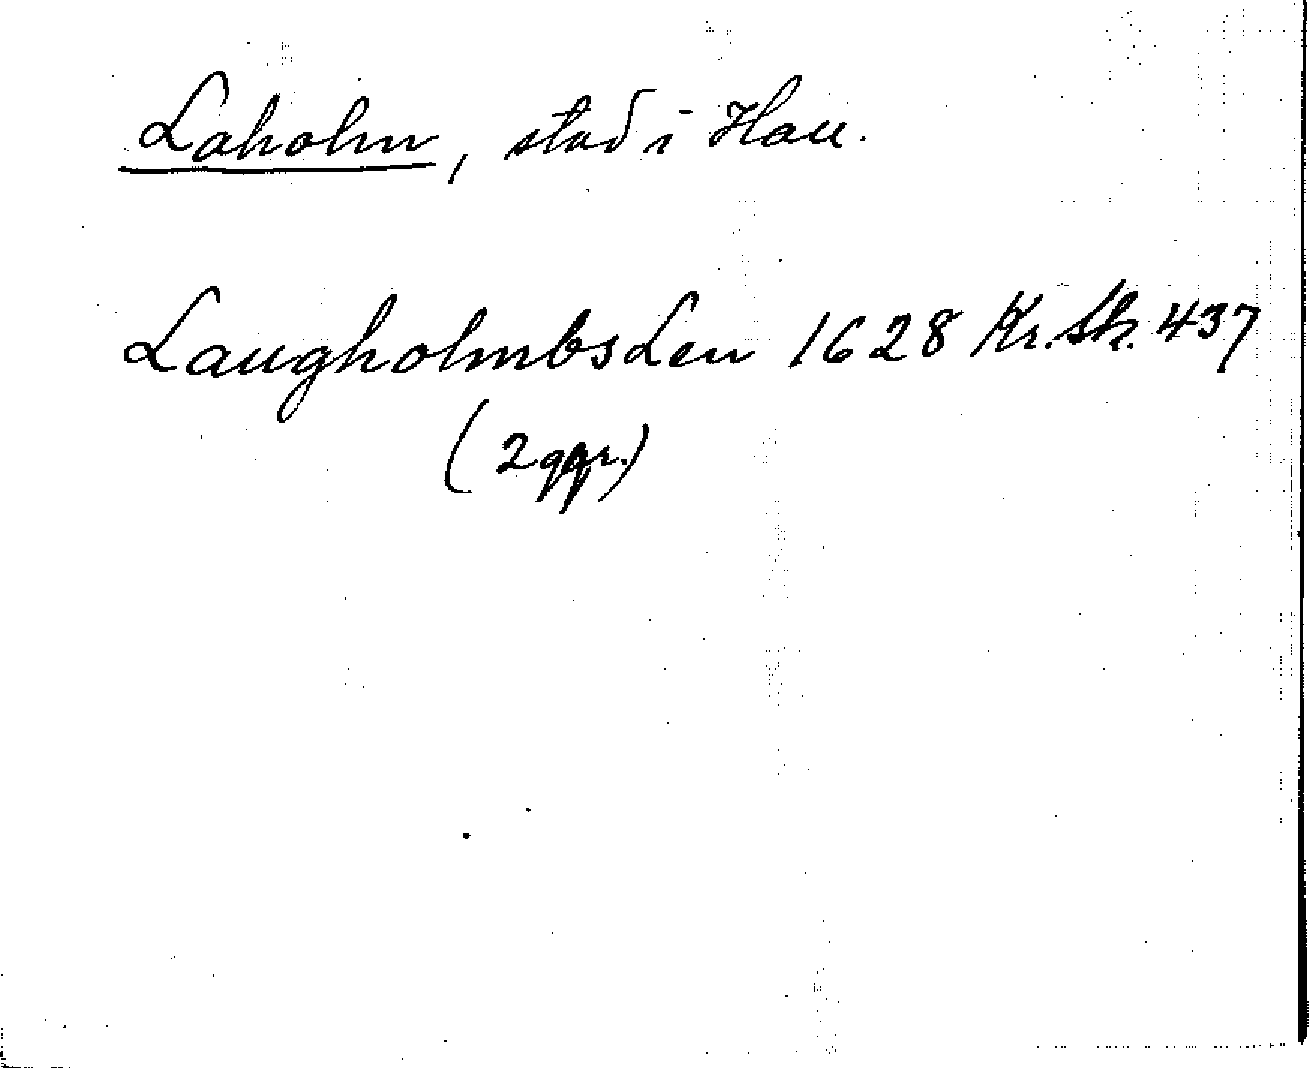 Laholm, stad i Hall.
Laugholmbs Len 1628 Kr. Sk. 437
(2 ggr.)